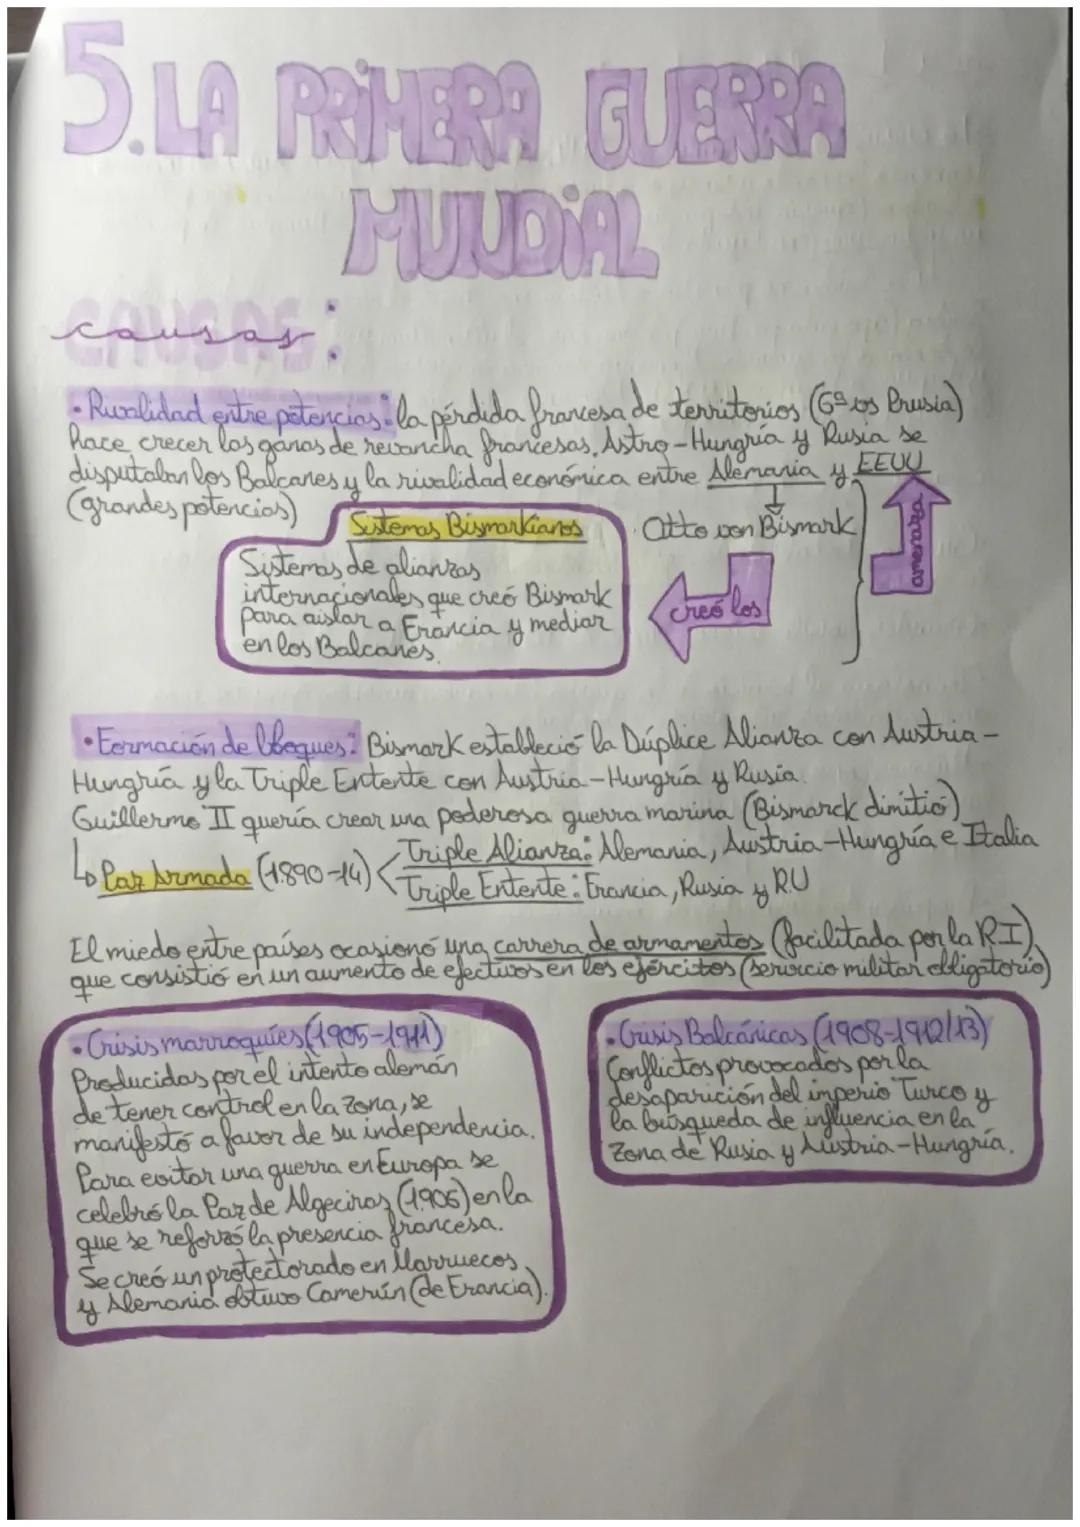 5. LA PRIMERA GUERRA
MUNDIAL
CAUSAS:
causas
• Rivalidad entre potencias: la pérdida francesa de territorios (Gª vs Prusia)
hace crecer las ganas de revancha francesas. Astro-Hungría y Rusia se
disputaban los Balcanes y la rivalidad económica entre Alemania y EEUU
(grandes potencias)
Otto von Bismark
amenaza
creó los
Sistemas Bismarkianos
Sistemas de alianzas
internacionales que creó Bismark
para aislar a Francia y mediar
en los Balcanes.
• Formación de bloques: Bismark estableció la Dúplice Alianza con Austria-
Hungría y la Triple Entente con Austria-Hungría y Rusia.
Guillermo II quería crear una poderosa guerra marina (Bismarck dimitió)
↳ Paz Armada (1890-14) <
Triple Alianza: Alemania, Austria-Hungría e Italia
Triple Entente: Francia, Rusia y R.U
El miedo entre países ocasionó una carrera de armamentos (facilitada por la R.I),
que consistió en un aumento de efectivos en los ejércitos (servicio militar obligatorio)
• Crisis marroquíes (1905-1911)
Producidas por el intento alemán
de tener control en la zona, se
manifestó a favor de su independencia.
Para evitar una guerra en Europa se
celebró la Paz de Algeciras (1906) en la
que se reforzó la presencia francesa.
Se creó un protectorado en Marruecos
y Alemania obtuvo Camerún (de Francia).
• Crisis Balcánicas (1908-1912/13)
Conflictos provocados por la
desaparición del imperio Turco y
la búsqueda de influencia en la
zona de Rusia y Austria-Hungría.